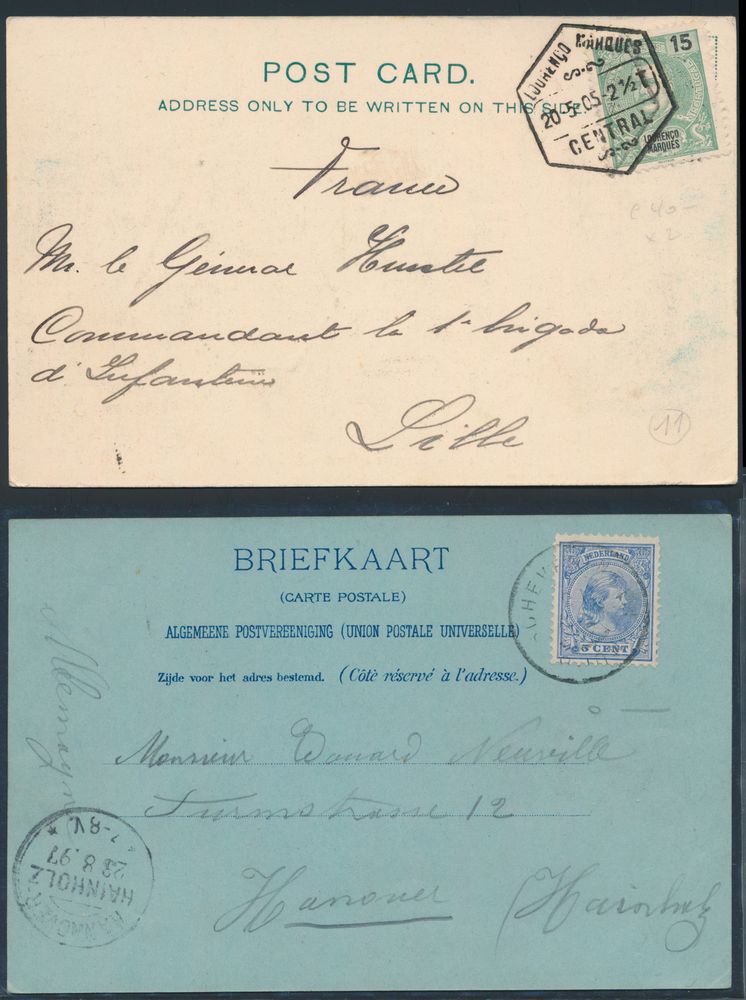 POST CARD.
ADDRESS ONLY TO BE WRITTEN ON THIS SIDE.
LOURENÇO MARQUES
20-5-05-2½ T
CENTRAL
15
LOURENÇO
MARQUES
France
€ 40-
x 2
Mr. le Général
Commandant la 1e brigade
d'Infanterie
Lille
11
BRIEFKAART
(CARTE POSTALE)
ALGEMEENE POSTVEREENIGING (UNION POSTALE UNIVERSELLE)
Zijde voor het adres bestemd. (Côté réservé à l'adresse.)
NEDERLAND
5 CENT
Allemagne
Monsieur Edouard Neuville
Turmstrasse 12
Hanover (Hainholz
HANNOVER
HAINHOLZ
23 8.97
7-8V.